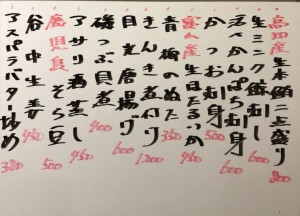 高知産 生本鮪二点盛り 800
生ミンク鯨刺し 600
活〆かんぱち刺身 600
かつお刺身 500
富山産 生ほたるいか 450
青柳のぬた
きんき煮付け 1200
目光唐揚げ 600
磯つぶ貝煮 400
アサリ酒蒸し 450
鹿児島 そら豆 500
谷中生姜 450
アスパラバター炒め 380